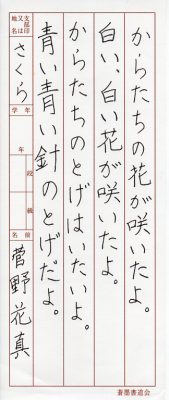 からたちの花が咲いたよ。
白い、白い花が咲いたよ。
からたちのとげはいたいよ。
青い青い針のとげだよ。
支部印又は地名
さくら
学年
年
段
級
名前
菅野花真
蒼墨書道会